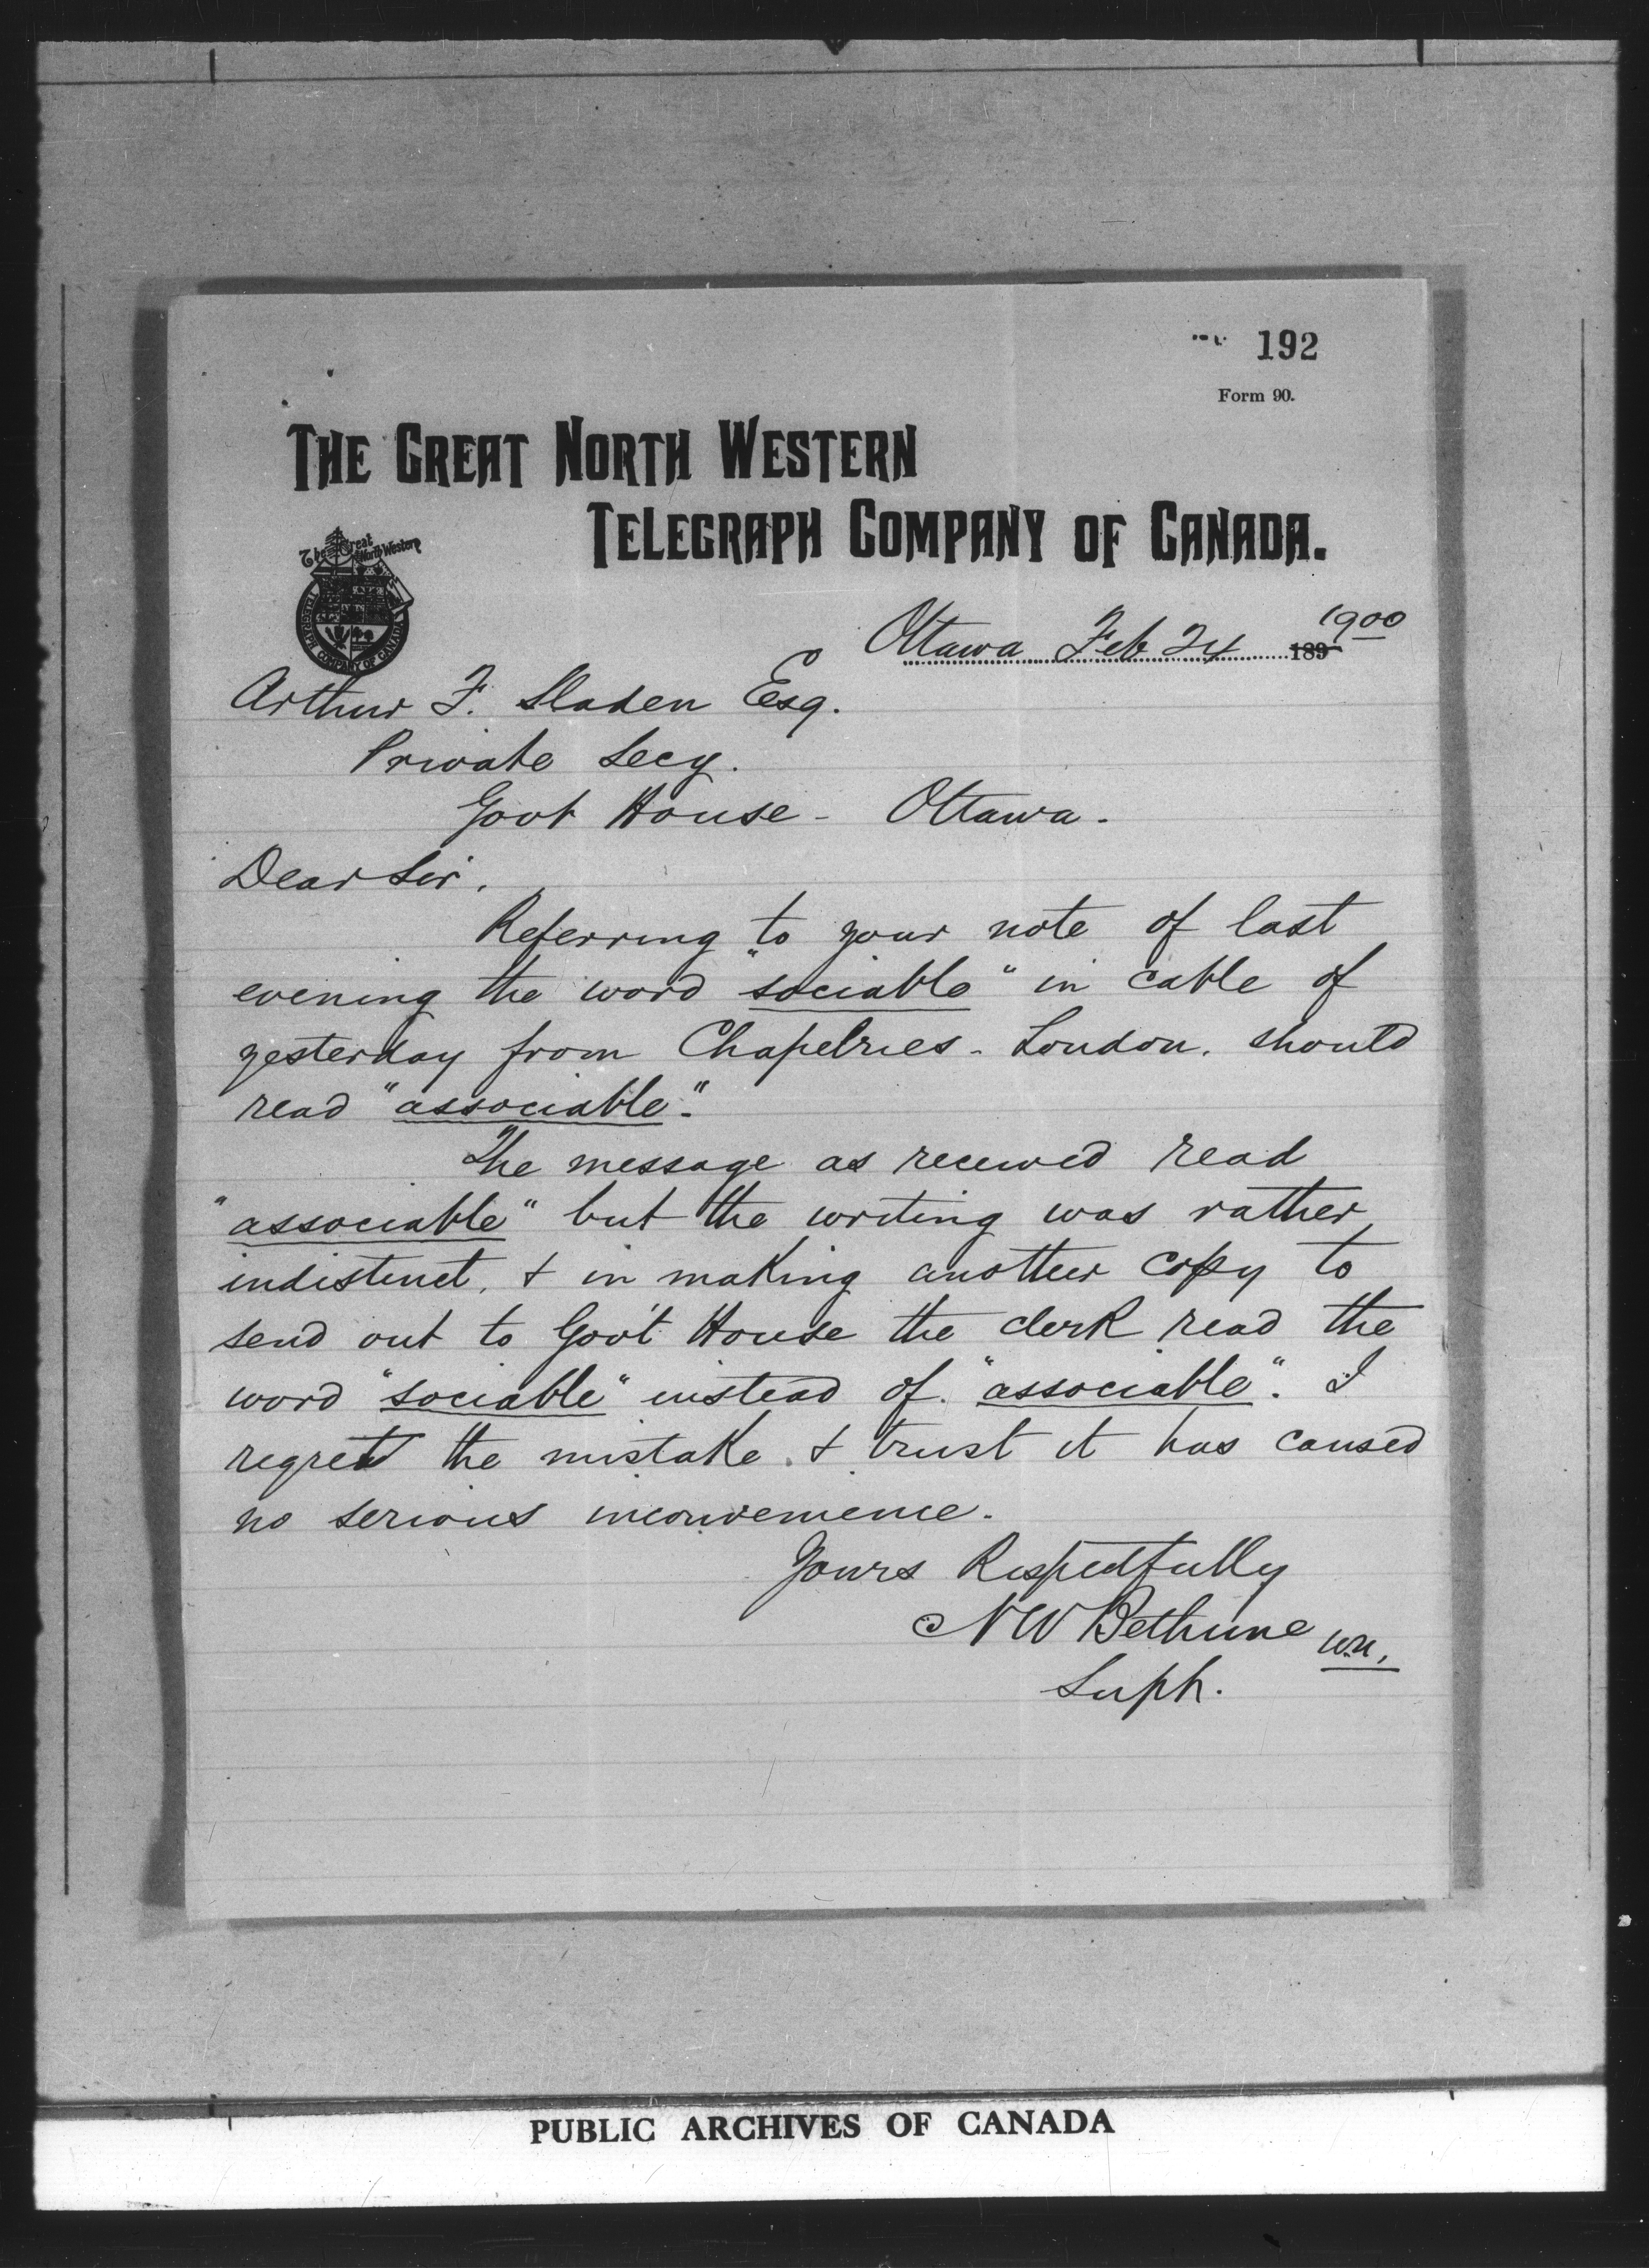 192
Form 90.
THE GREAT NORTH WESTERN
TELEGRAPH COMPANY OF CANADA.
The Great North Western
TELEGRAPH COMPANY OF CANADA
Ottawa Feb 24 189 1900
Arthur F. Sladen Esq.
Private Secy.
Govt House - Ottawa.
Dear Sir.
Referring to your note of last
evening the word "sociable" in cable of
yesterday from Chapelries - London. should
read "associable".
The message as received read
"associable" but the writing was rather
indistinct, & in making another copy to
send out to Gov't House the clerk read the
word "sociable" instead of "associable". I
regret the mistake & trust it has caused
no serious inconvenience.
Yours Respectfully
NW Bethune
Supt.
PUBLIC ARCHIVES OF CANADA